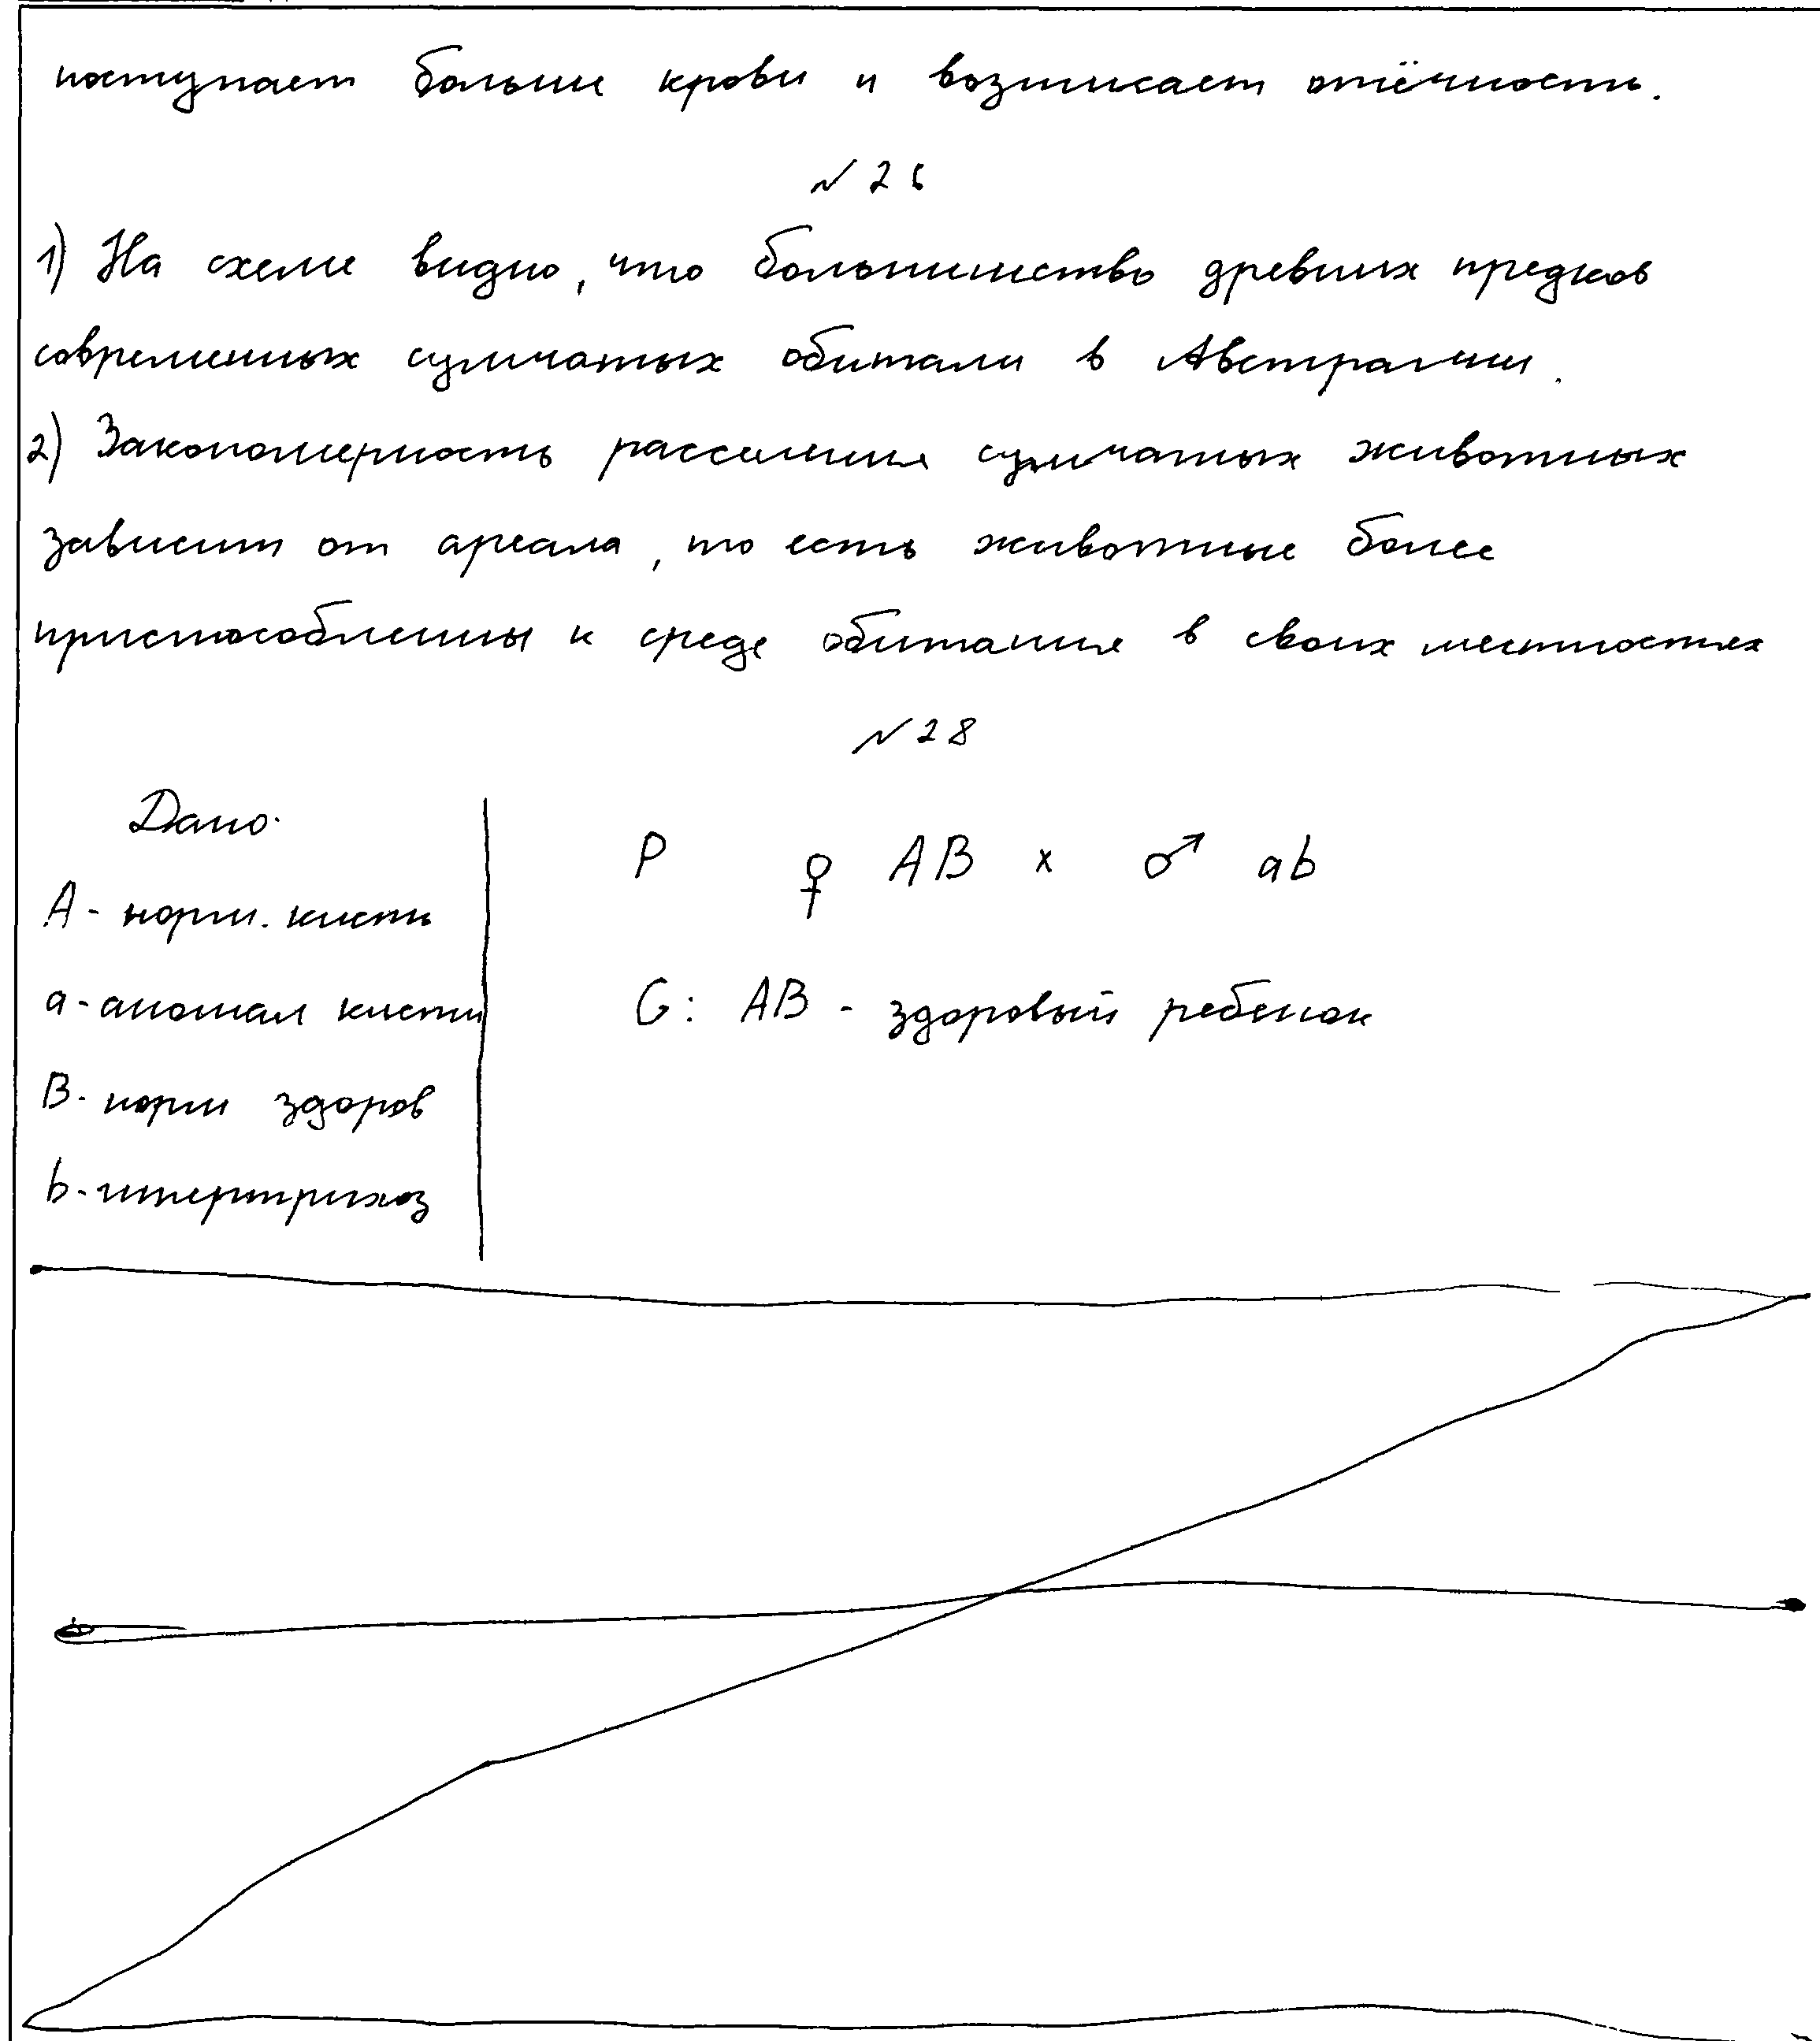 поступает больше крови и возникает отёчность.
№26
1) На схеме видно, что большинство древних предков
современных сумчатых обитали в Австралии.
2) Закономерность расселения сумчатых животных
зависит от ареала, то есть животные более
приспособленны к среде обитания в своих местностях
№28
Дано:
А - норм. кисть
а - аномал кисти
В - норм здоров
b - гипертрихоз
P ♀ AB x ♂ ab
G: AB - здоровый ребенок